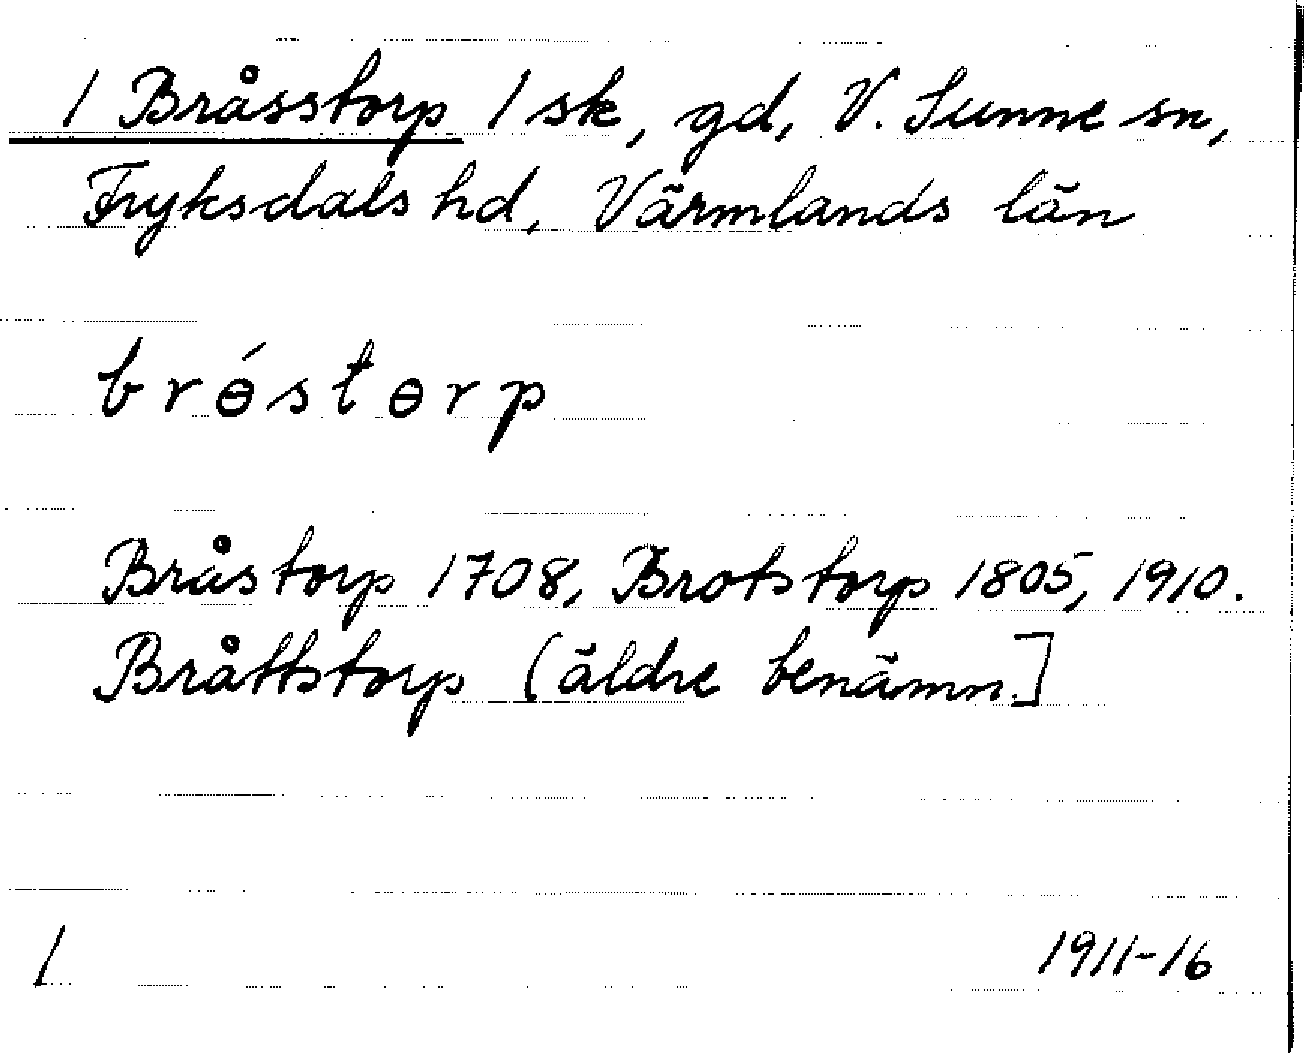 / Bråsstorp / sk, gd, V. Sunne sn,
Fryksdals hd, Värmlands län
brɵ́stɵrp
Bråstorp 1708, Brotstorp 1805, 1910.
Bråttstorp (äldre benämn.]
/ 1911-16